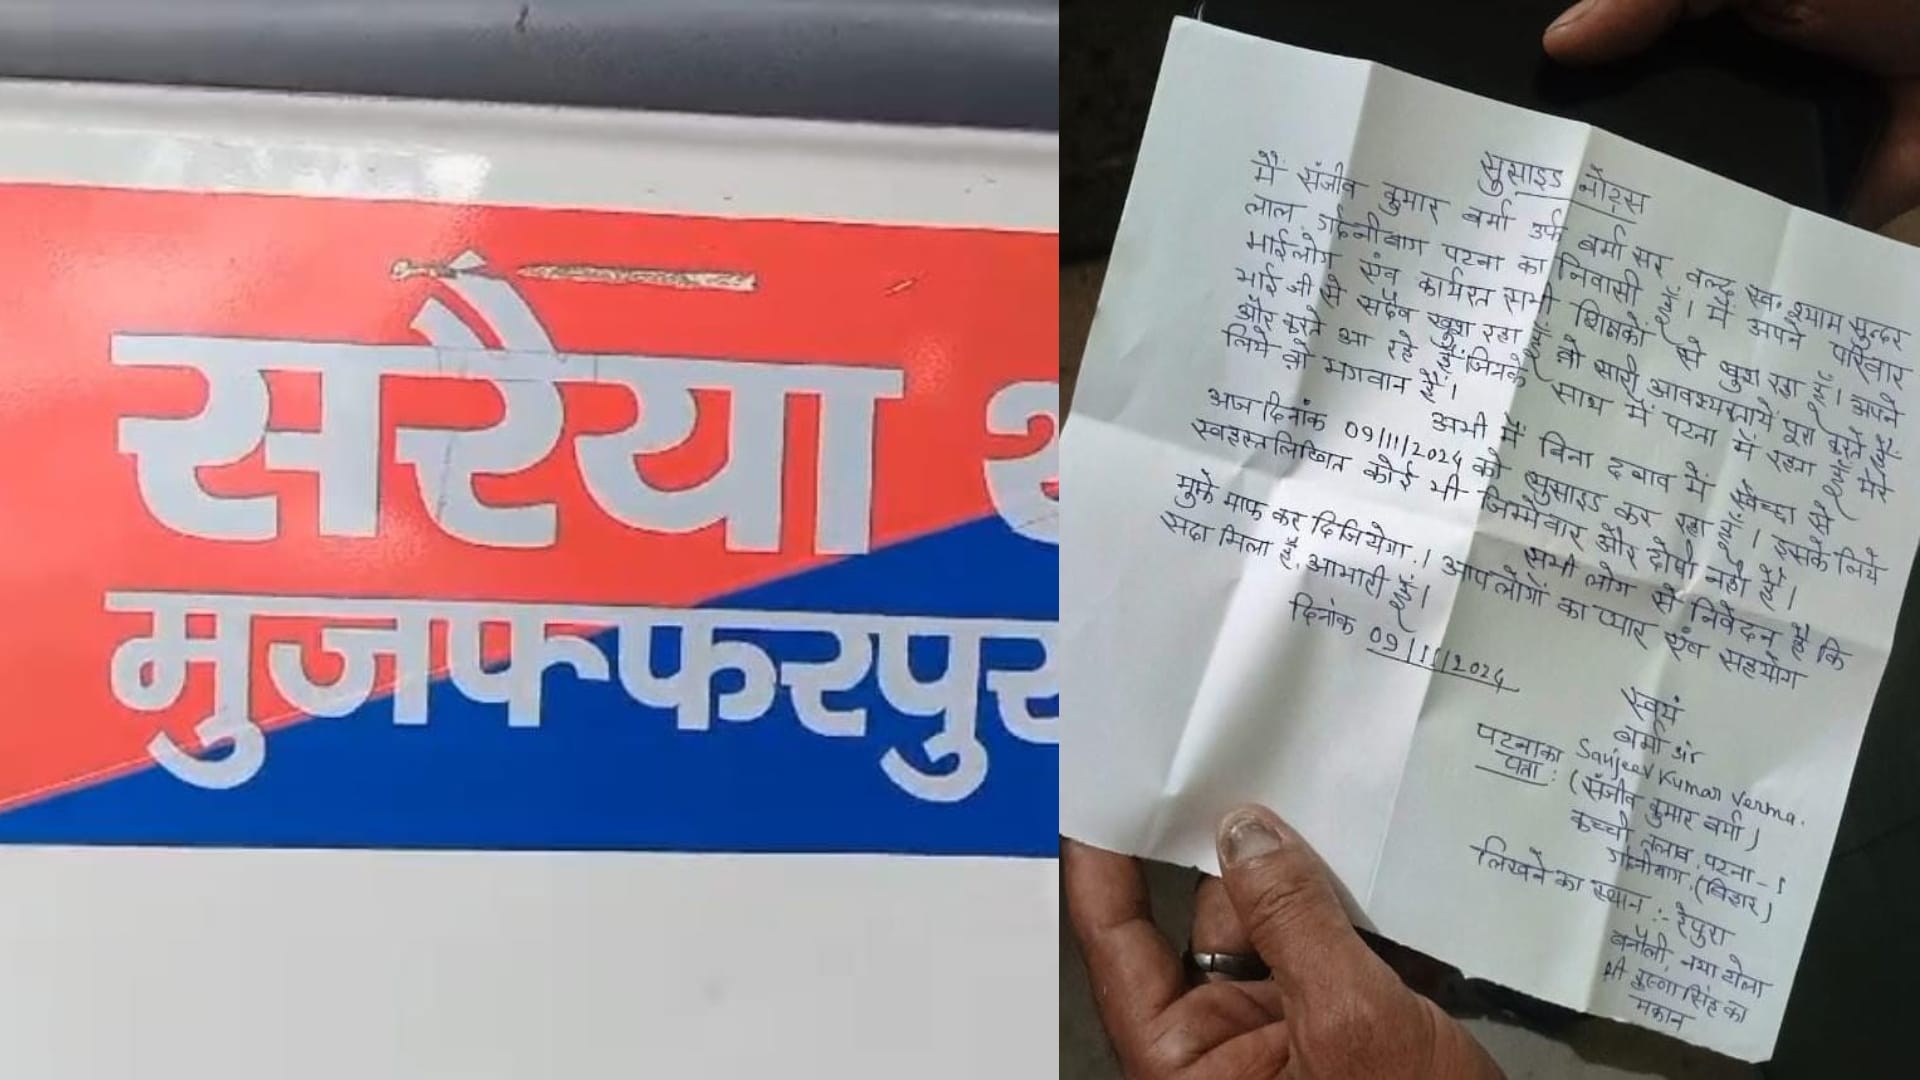 सरैया थ
मुजफ्फरपुर
सुसाइड नोट्स
मैं संजीव कुमार वर्मा उर्फ वर्मा सर वल्द स्व. श्याम सुन्दर
लाल गर्दनीबाग पटना का निवासी हूँ। मैं अपने परिवार
भाईलोग एंव कार्यरत सभी शिक्षकों से खुश रहा हूँ। अपने
भाई जी से सदैव खुश रहा हूँ वो सारी आवश्यकतायें पूरा करते हैं
और करते आ रहे हैं जिनके साथ में पटना में रहता हूँ मेरे
लिये वो भगवान हैं।
अभी मैं बिना दबाव में स्वेच्छा से
अज दिनांक 09/11/2024 को सुसाइड कर रहा हूँ। इसके लिये
स्वहस्तलिखित कोई भी जिम्मेवार और दोषी नहीं हैं।
सभी लोग से निवेदन है कि
मुझे माफ कर दिजियेगा। आपलोगों का प्यार एंव सहयोग
सदा मिला है, आभारी हूँ।
दिनांक 09/11/2024
स्वयं
वर्मा sir
Sanjeev Kumar Verma.
पटनाका पता : (संजीव कुमार वर्मा)
कच्ची तलाब, पटना-1
गर्दनीबाग, (बिहार)
लिखने का स्थान :- रेपुरा
बनौली, नया टोला
श्री कृष्णा सिंह का
मकान